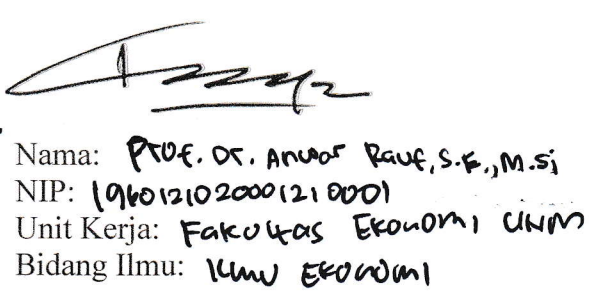 Nama: Prof. Dr. Anwar Rauf, S.E., M.Si
NIP: 1960121020001210001
Unit Kerja: Fakultas Ekonomi UNM
Bidang Ilmu: Ilmu Ekonomi